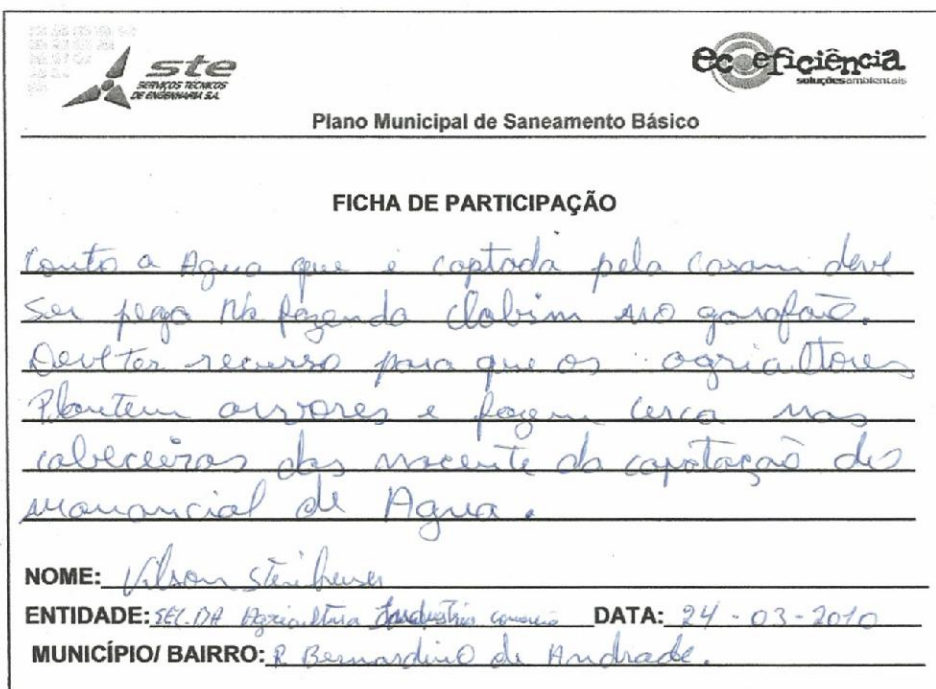 ste
SERVIÇOS TÉCNICOS
DE ENGENHARIA S.A.
ecoeficiência
soluções ambientais
Plano Municipal de Saneamento Básico
FICHA DE PARTICIPAÇÃO
a Agua que é captada pela Casam deve
ser pego na fazenda no garafão.
Deve ter recurso para que os agricultores
Plantem arvores e fazem cerca nas
cabeceiras das nacente da capitação dos
manancial de Agua.
NOME: Vilson
ENTIDADE: SEC. DA Agricultura Industria comercio DATA: 24-03-2010
MUNICÍPIO/ BAIRRO: R Bernardino de Andrade.